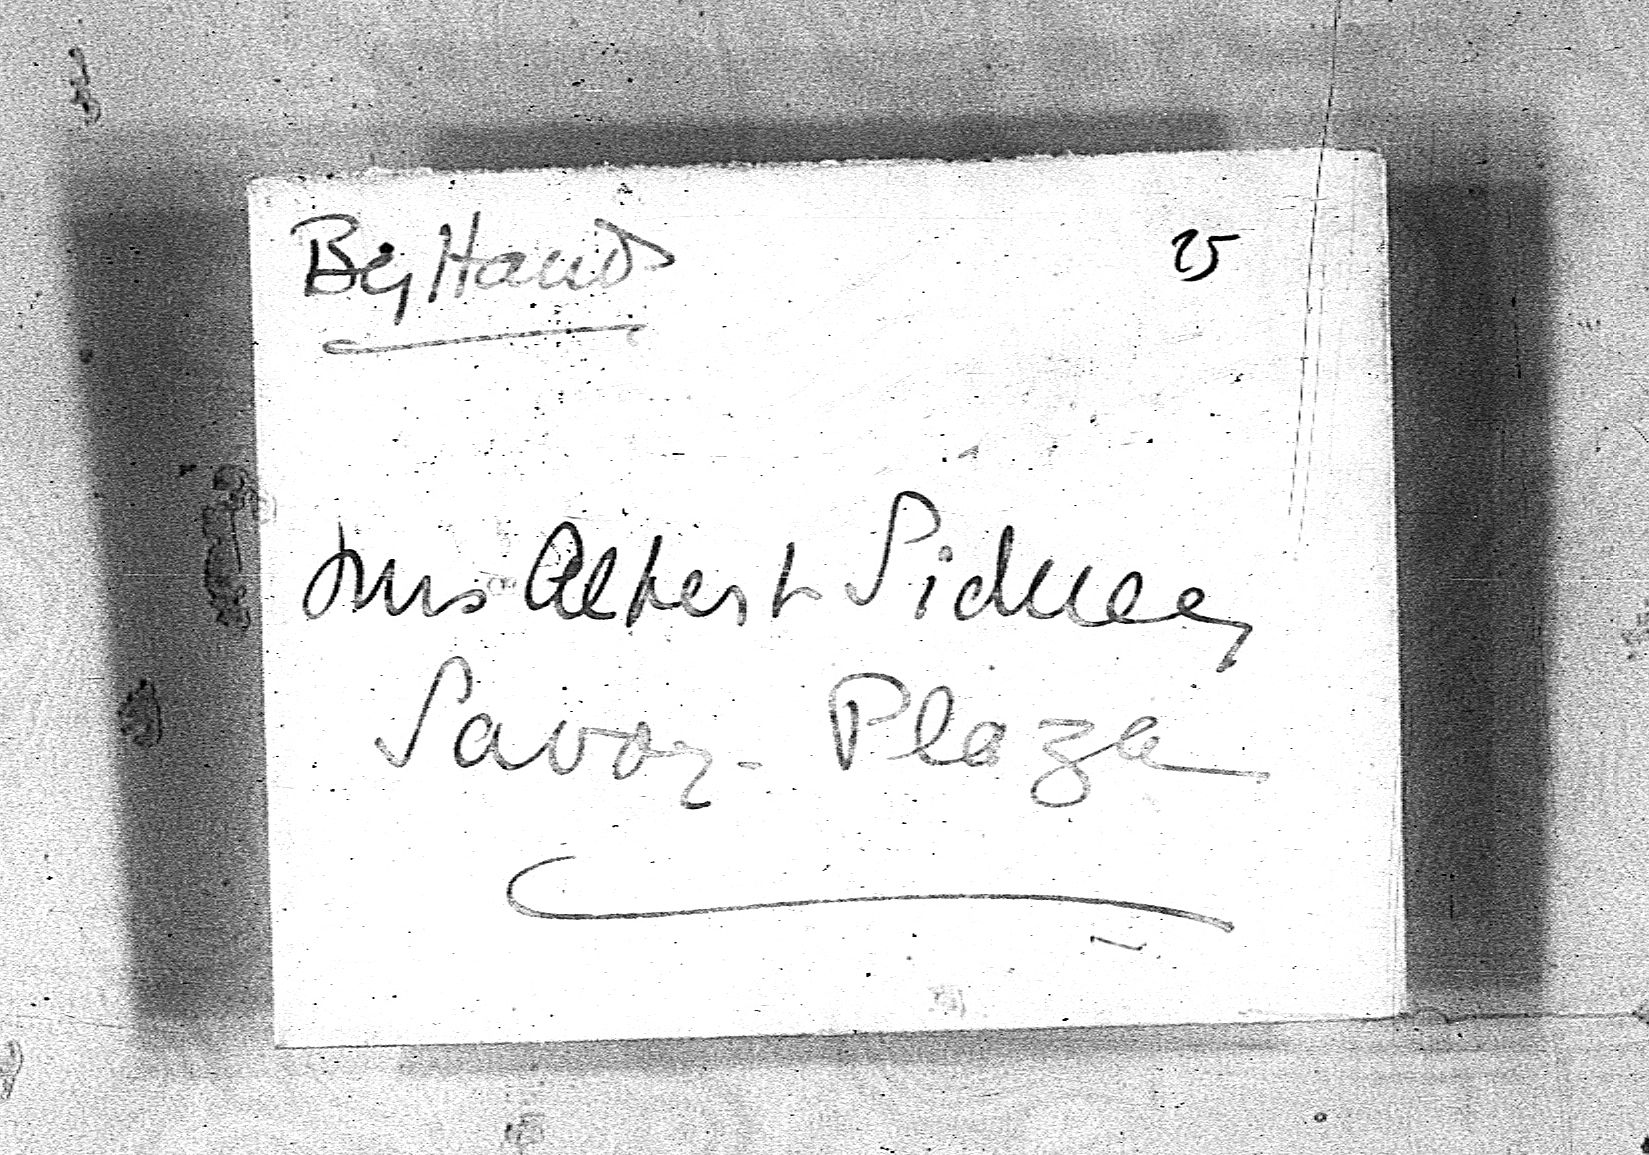 By Hand
25
Mrs Albert Sidney
Savoy-Plaza